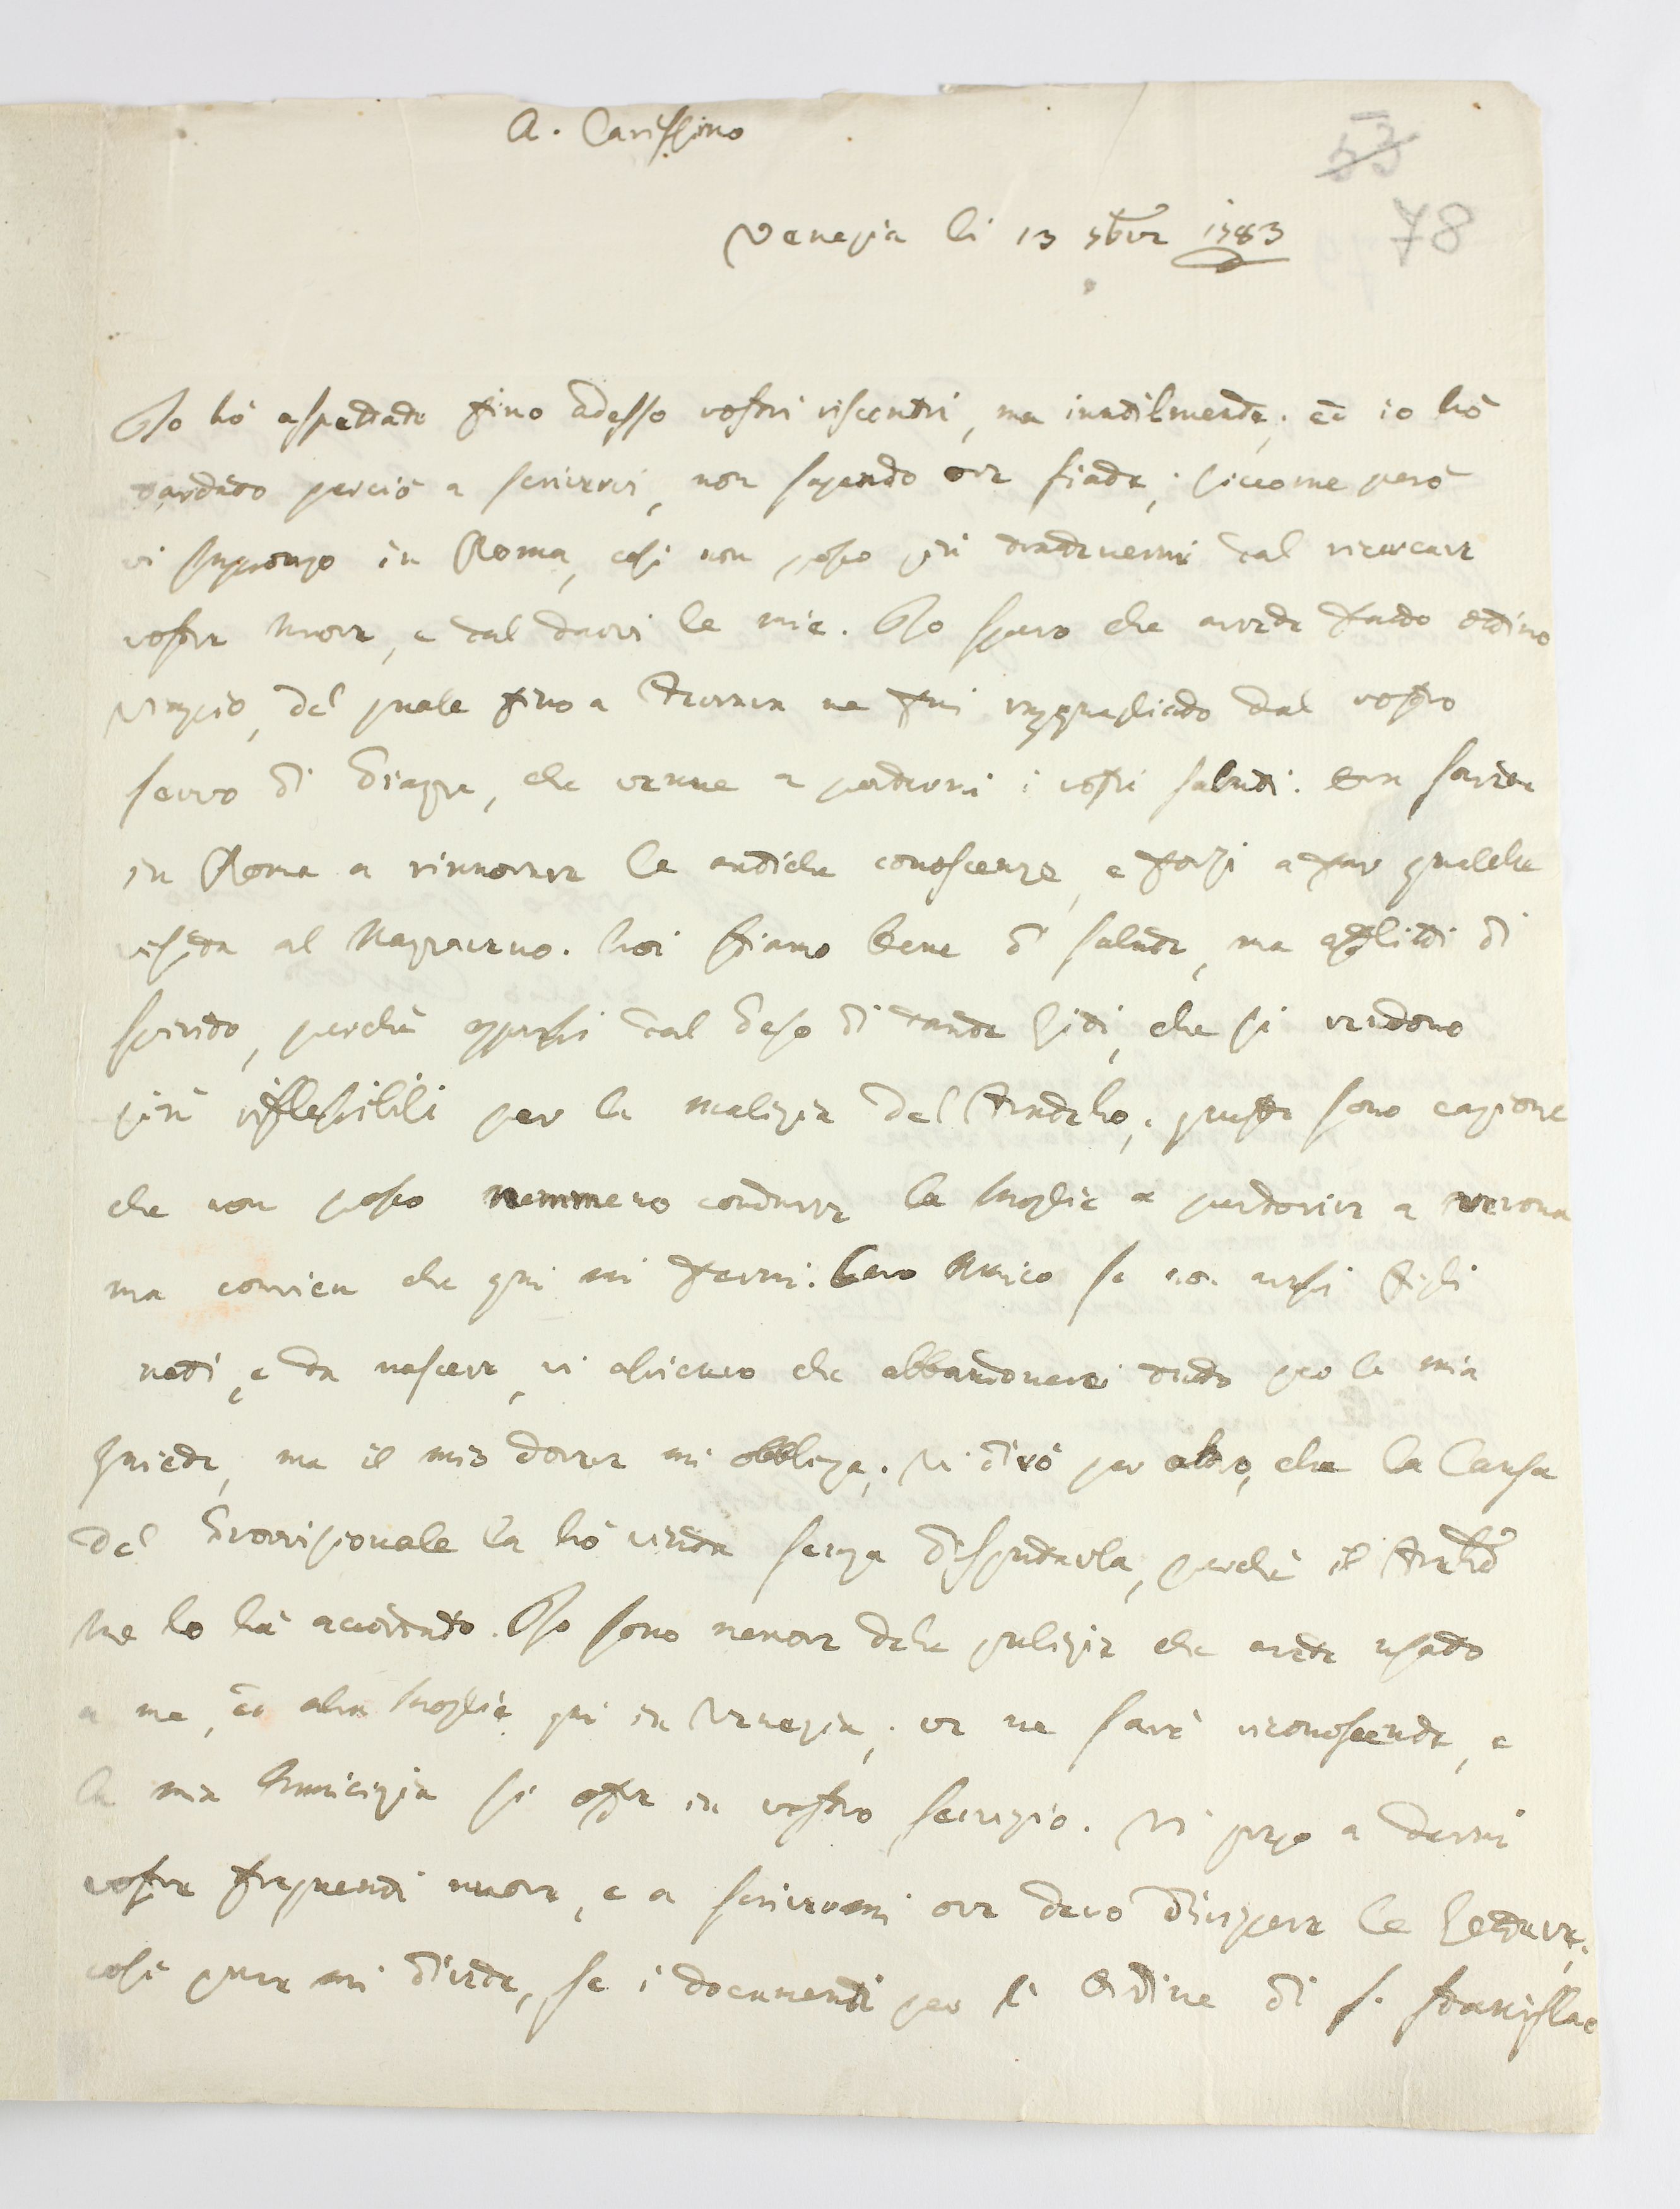 A. Carissimo
53
78
Venezia li 13 7bre 1783
Io hò aspettato fino adesso vostri riscontri, ma inutilmente; ed io hò
tardato perciò a scrivervi, non sapendo ove siate; siccome però
vi suppongo in Roma, così non posso più trattenermi dal ricercare
vostre nuove, e dal darvi le mie. Io spero che avrete fatto ottimo
viaggio, del quale fino a Ferrara ne fui ragguagliato dal vostro
servo di Piazza, che venne a portarmi i vostri saluti. Ora sarete
in Roma a rinnovare le antiche conoscenze, e forsi a far qualche
visita al Nazareno. Noi stiamo bene di salute, ma afflitti di
spirito, perchè oppressi dal peso di tante Liti, che si rendono
più riflessibili per la malizia del Fratello; queste sono cagione
che non posso nemmeno condurre la Moglie a partorire a Verona
ma convien che qui mi fermi. Caro Amico se non avessi figli
nati, e da nascere, vi assicuro che abbandonerei tutto per la mia
quiete, ma il mio dover mi obbliga; Vi dirò per altro, che la Causa
del Provisionale la hò vinta senza disputarla, perchè il Frello
me lo hà accordato. Io sono memore della pulizia che avete usato
a me, ed alla Moglie quì in Venezia; ve ne sarò riconoscente, e
la mia Amicizia si offre in vostro servizio. Vi prego a darmi
vostre frequenti nuove, e a scrivermi ove devo dirigere le Lettere;
così pure mi direte, se i documenti per l' Ordine di S. Stanislao